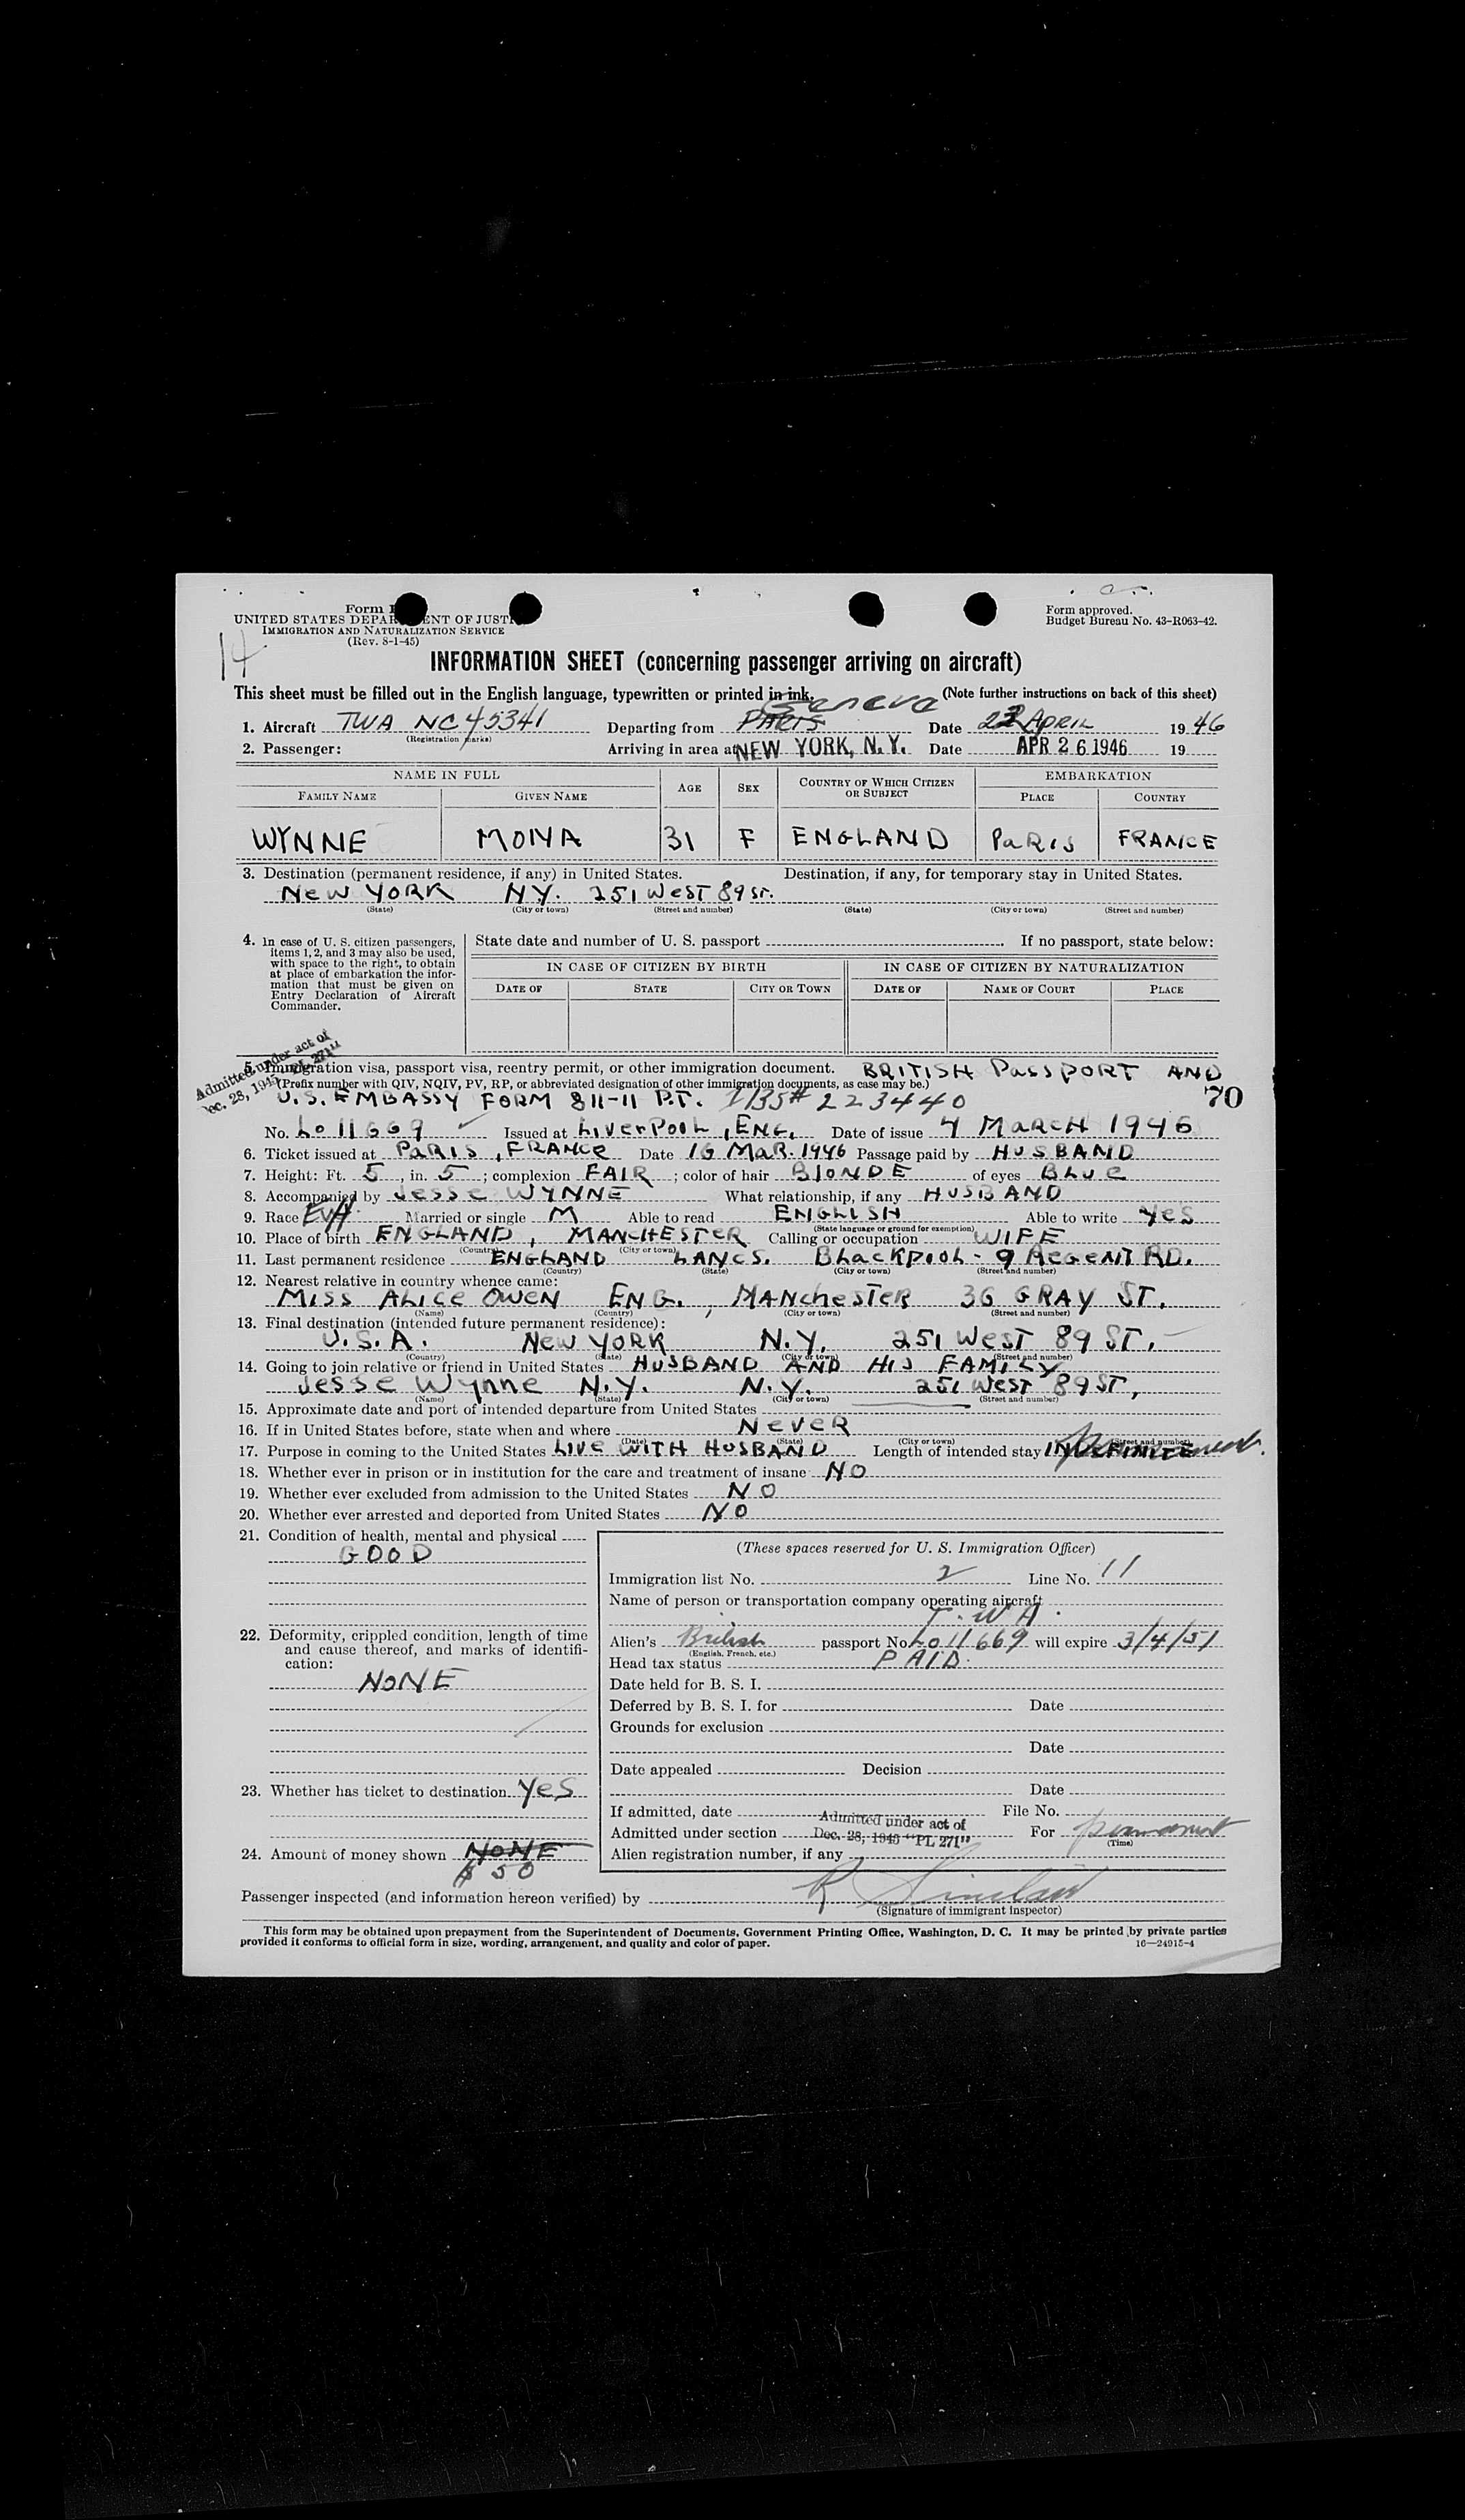 Form I
UNITED STATES DEPARTMENT OF JUSTICE
IMMIGRATION AND NATURALIZATION SERVICE
(Rev. 8-1-45)
Form approved.
Budget Bureau No. 43-R063-42.
14
INFORMATION SHEET (concerning passenger arriving on aircraft)
This sheet must be filled out in the English language, typewritten or printed in ink. (Note further instructions on back of this sheet)
Geneva
1. Aircraft TWA NC 45341 Departing from PARIS Date 23 APRIL 1946
(Registration marks)
2. Passenger: Arriving in area at NEW YORK, N.Y. Date APR 26 1946 19
NAME IN FULL AGE SEX COUNTRY OF WHICH CITIZEN OR SUBJECT EMBARKATION
FAMILY NAME GIVEN NAME PLACE COUNTRY
WYNNE MONA 31 F ENGLAND PARIS FRANCE
3. Destination (permanent residence, if any) in United States. Destination, if any, for temporary stay in United States.
NEW YORK N.Y. 251 WEST 89 ST.
(State) (City or town) (Street and number) (State) (City or town) (Street and number)
4. In case of U. S. citizen passengers, items 1, 2, and 3 may also be used, with space to the right, to obtain at place of embarkation the information that must be given on Entry Declaration of Aircraft Commander.
State date and number of U. S. passport If no passport, state below:
IN CASE OF CITIZEN BY BIRTH IN CASE OF CITIZEN BY NATURALIZATION
DATE OF STATE CITY OR TOWN DATE OF NAME OF COURT PLACE
Admitted under act of
Dec. 28, 1945 "PL 271"
5. Immigration visa, passport visa, reentry permit, or other immigration document. BRITISH PASSPORT AND
(Prefix number with QIV, NQIV, PV, RP, or abbreviated designation of other immigration documents, as case may be.)
U.S. EMBASSY FORM 811-11 P.T. I135# 223440 70
No. Lo 11669 Issued at LIVERPOOL, ENG. Date of issue 4 MARCH 1946
6. Ticket issued at PARIS, FRANCE Date 16 MAR. 1946 Passage paid by HUSBAND
7. Height: Ft. 5, in. 5; complexion FAIR; color of hair BLONDE of eyes BLUE
8. Accompanied by JESSE WYNNE What relationship, if any HUSBAND
9. Race Married or single M Able to read ENGLISH Able to write YES
(State language or ground for exemption)
10. Place of birth ENGLAND, MANCHESTER Calling or occupation WIFE
(Country) (City or town)
11. Last permanent residence ENGLAND LANCS. BLACKPOOL - 9 REGENT RD.
(Country) (State) (City or town) (Street and number)
12. Nearest relative in country whence came:
MISS ALICE OWEN ENG., MANCHESTER 36 GRAY ST.
(Name) (Country) (City or town) (Street and number)
13. Final destination (intended future permanent residence):
U.S.A. NEW YORK N.Y. 251 WEST 89 ST.
(Country) (State) (City or town) (Street and number)
14. Going to join relative or friend in United States HUSBAND AND HIS FAMILY
JESSE WYNNE N.Y. N.Y. 251 WEST 89 ST,
(Name) (State) (City or town) (Street and number)
15. Approximate date and port of intended departure from United States
16. If in United States before, state when and where NEVER
(Date) (State) (City or town) (Street and number)
17. Purpose in coming to the United States LIVE WITH HUSBAND Length of intended stay INDEFINITE Permanent.
18. Whether ever in prison or in institution for the care and treatment of insane NO
19. Whether ever excluded from admission to the United States NO
20. Whether ever arrested and deported from United States NO
21. Condition of health, mental and physical
GOOD
22. Deformity, crippled condition, length of time and cause thereof, and marks of identification:
NONE
23. Whether has ticket to destination YES
24. Amount of money shown NONE
$50
(These spaces reserved for U. S. Immigration Officer)
Immigration list No. 2 Line No. 11
Name of person or transportation company operating aircraft
T.W.A.
Alien's British passport No. Lo 11669 will expire 3/4/51
(English, French, etc.)
Head tax status PAID.
Date held for B. S. I.
Deferred by B. S. I. for Date
Grounds for exclusion
Date
Date appealed Decision
Date
If admitted, date File No.
Admitted under section Admitted under act of Dec. 28, 1945 "PL 271" For permanent
(Time)
Alien registration number, if any
Passenger inspected (and information hereon verified) by R Sinclair
(Signature of immigrant inspector)
This form may be obtained upon prepayment from the Superintendent of Documents, Government Printing Office, Washington, D. C. It may be printed by private parties
provided it conforms to official form in size, wording, arrangement, and quality and color of paper. 16—24915-4